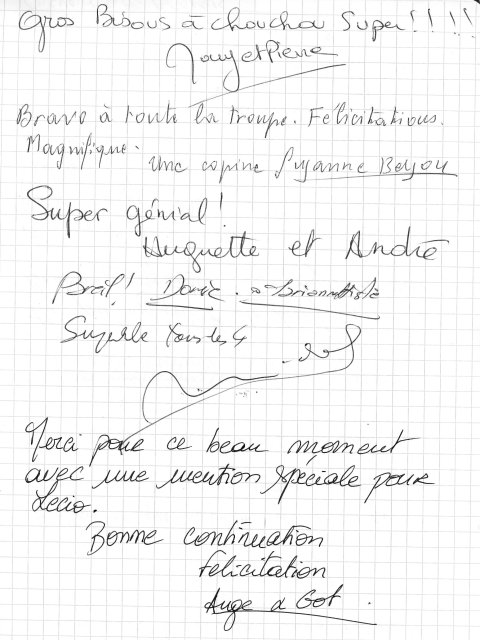 Gros Bisous à chouchou Super!!!!
et Pierre
Bravo à toute la troupe. Félicitations.
Magnifique.
Une copine Suzanne
Super génial!
Huguette et André
Superbe tous les 4
Merci pour ce beau moment
avec une mention spéciale pour
Lecio.
Bonne continuation
Felicitation